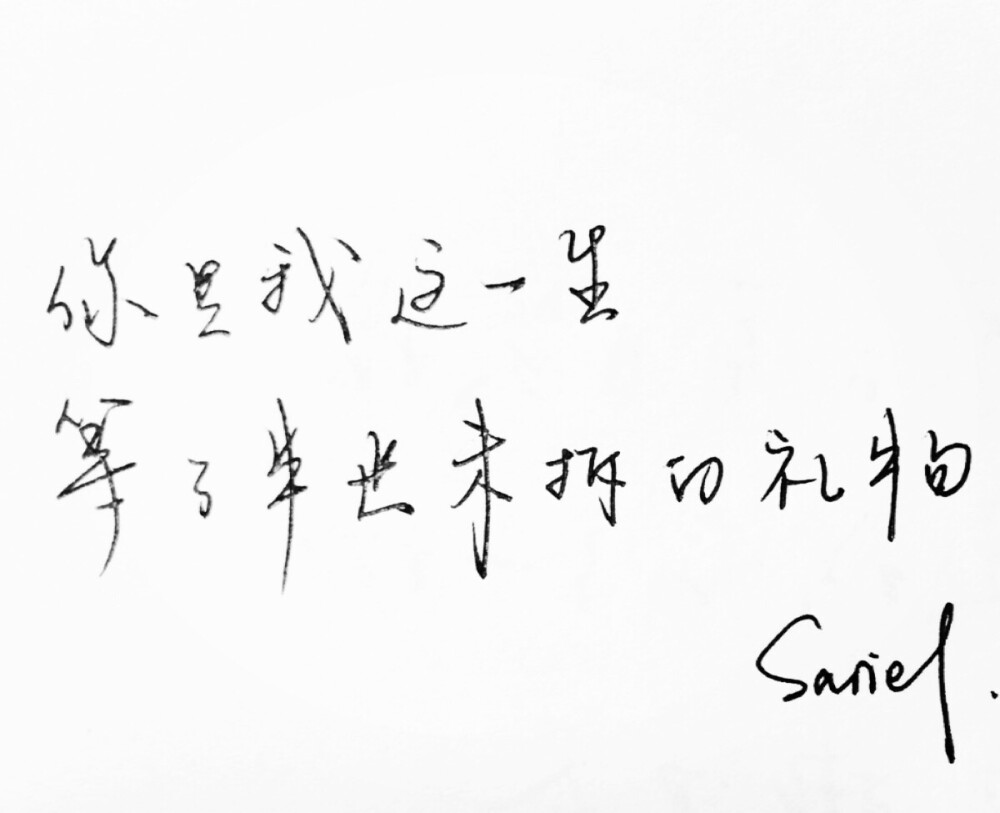 你是我这一生
等了半世未拆的礼物
Sariel.